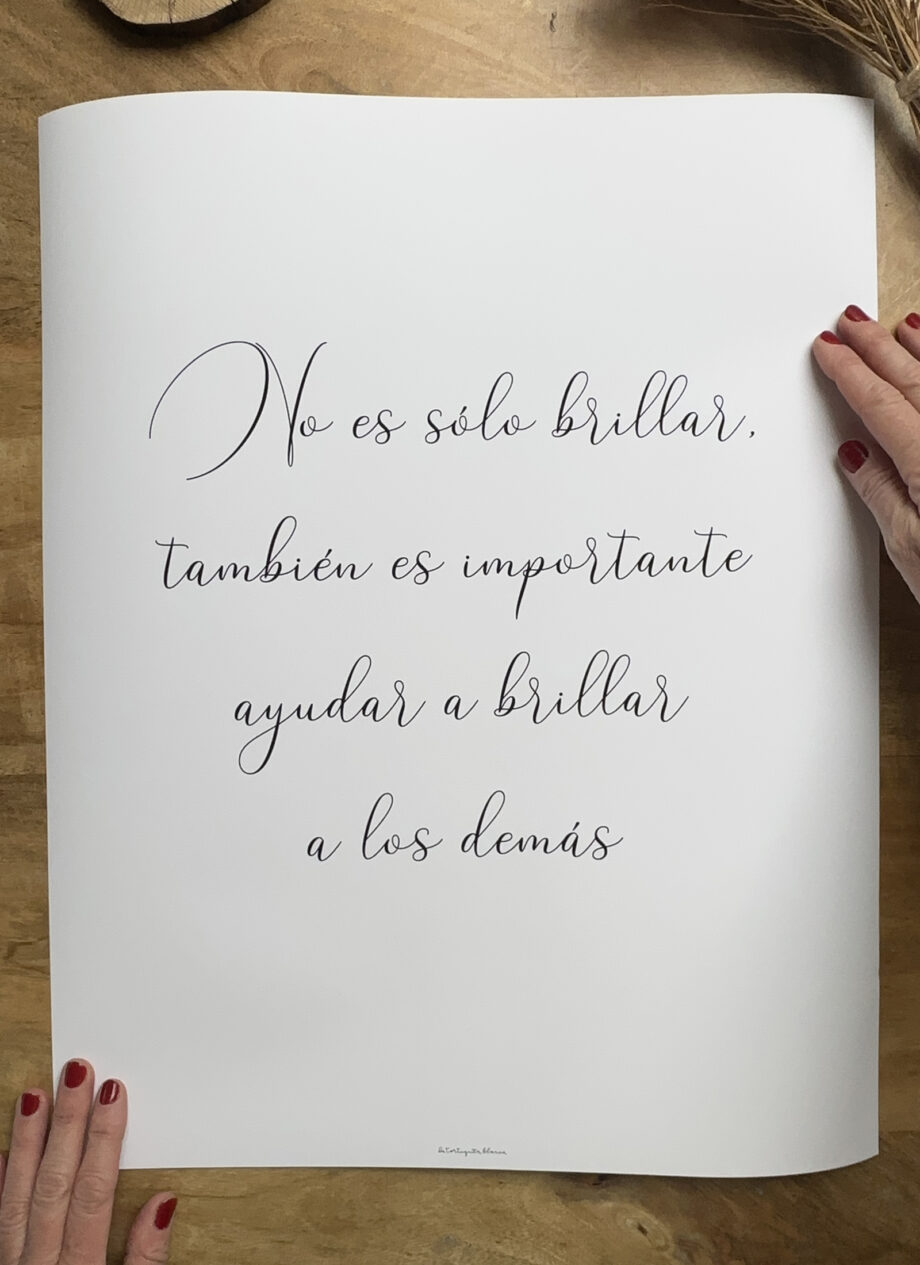 No es sólo brillar,
también es importante
ayudar a brillar
a los demás
la tortuguita blanca